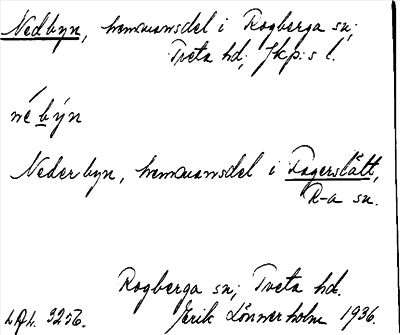 Nedbyn, hemmansdel i Rogberga sn;
Tveta hd; Jkp:s l.
né býn
Nederbyn, hemmansdel i Fagerslätt,
R-a sn.
Rogberga sn; Tveta hd.
Erik Lönnerholm 1936.
3256.